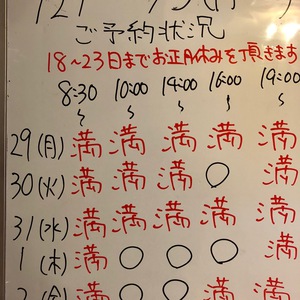 ご予約状況
18～23日までお正月休みを頂きます
8:30 10:00 14:00 16:00 19:00
29(月) 満 満 満 満 満
30(火) 満 満 満 ○ 満
31(水) 満 満 満 満 満
1(木) 満 ○ ○ ○ 満
2(金) 満 ○ 満 ○ 満